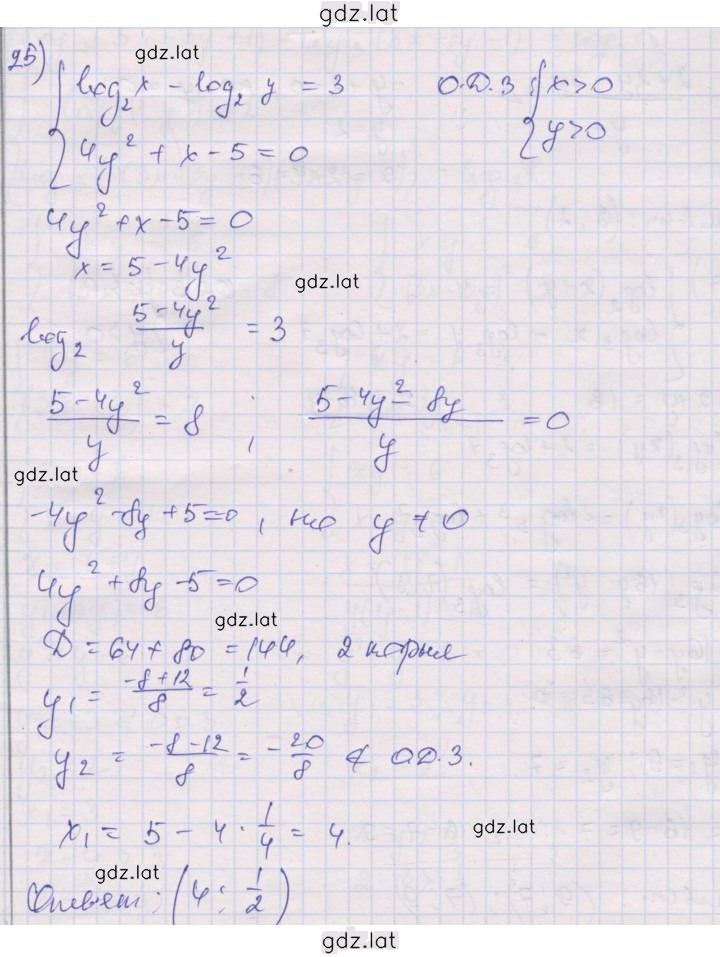 gdz.lat
25)
gdz.lat
{ log₂x - log₂ y = 3 О.Д.З { x>0
4y² + x - 5 = 0 y>0
4y² + x - 5 = 0
x = 5 - 4y²
gdz.lat
log₂ (5-4y²)/y = 3
(5-4y²)/y = 8 ; (5-4y²-8y)/y = 0
gdz.lat
-4y² - 8y + 5 = 0, но y ≠ 0
4y² + 8y - 5 = 0
gdz.lat
D = 64 + 80 = 144, 2 корня
y₁ = (-8+12)/8 = 1/2
y₂ = (-8-12)/8 = -20/8 ∉ О.Д.З.
x₁ = 5 - 4 · 1/4 = 4. gdz.lat
gdz.lat
Ответ: (4; 1/2)
gdz.lat